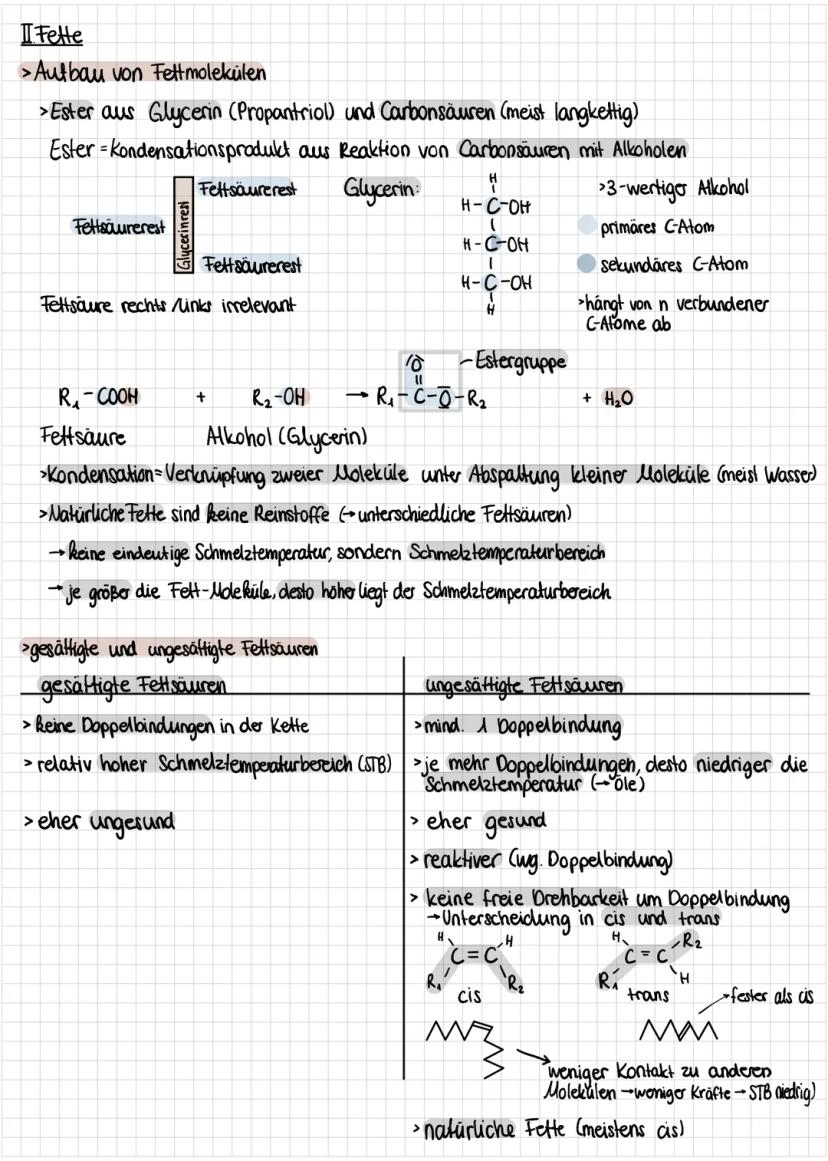 II Fette
>Aufbau von Fettmolekülen
>Ester aus Glycerin (Propantriol) und Carbonsäuren (meist langkettig)
Ester = Kondensationsprodukt aus Reaktion von Carbonsäuren mit Alkoholen
Fettsäurerest
Fettsäurerest
Glycerinrest
Fettsäurerest
Fettsäure rechts/links irrelevant
Glycerin:
H
H-C-OH
H-C-OH
H-C-OH
H
>3-wertiger Alkohol
primäres C-Atom
sekundäres C-Atom
>hängt von n verbundener
C-Atome ab
O -Estergruppe
R₁-COOH + R₂-OH → R₁-C-O-R₂ + H₂O
Fettsäure Alkohol (Glycerin)
>Kondensation=Verknüpfung zweier Moleküle unter Abspaltung kleiner Moleküle (meist Wasser)
>Natürliche Fette sind keine Reinstoffe (→unterschiedliche Fettsäuren)
→keine eindeutige Schmelztemperatur, sondern Schmelztemperaturbereich
→je größer die Fett-Moleküle, desto höher liegt der Schmelztemperaturbereich
>gesättigte und ungesättigte Fettsäuren
gesättigte Fettsäuren
>keine Doppelbindungen in der Kette
>relativ hoher Schmelztemperaturbereich (STB)
>eher ungesund
ungesättigte Fettsäuren
>mind. 1 Doppelbindung
>je mehr Doppelbindungen, desto niedriger die
Schmelztemperatur (→Öle)
> eher gesund
>reaktiver (wg. Doppelbindung)
> keine freie Drehbarkeit um Doppelbindung
→Unterscheidung in cis und trans
H H
C=C
R₁ R₂
cis
H R₂
C=C
R₁ H
trans
fester als cis
weniger Kontakt zu anderen
Molekülen →weniger Kräfte→STB niedrig)
>natürliche Fette (meistens cis)